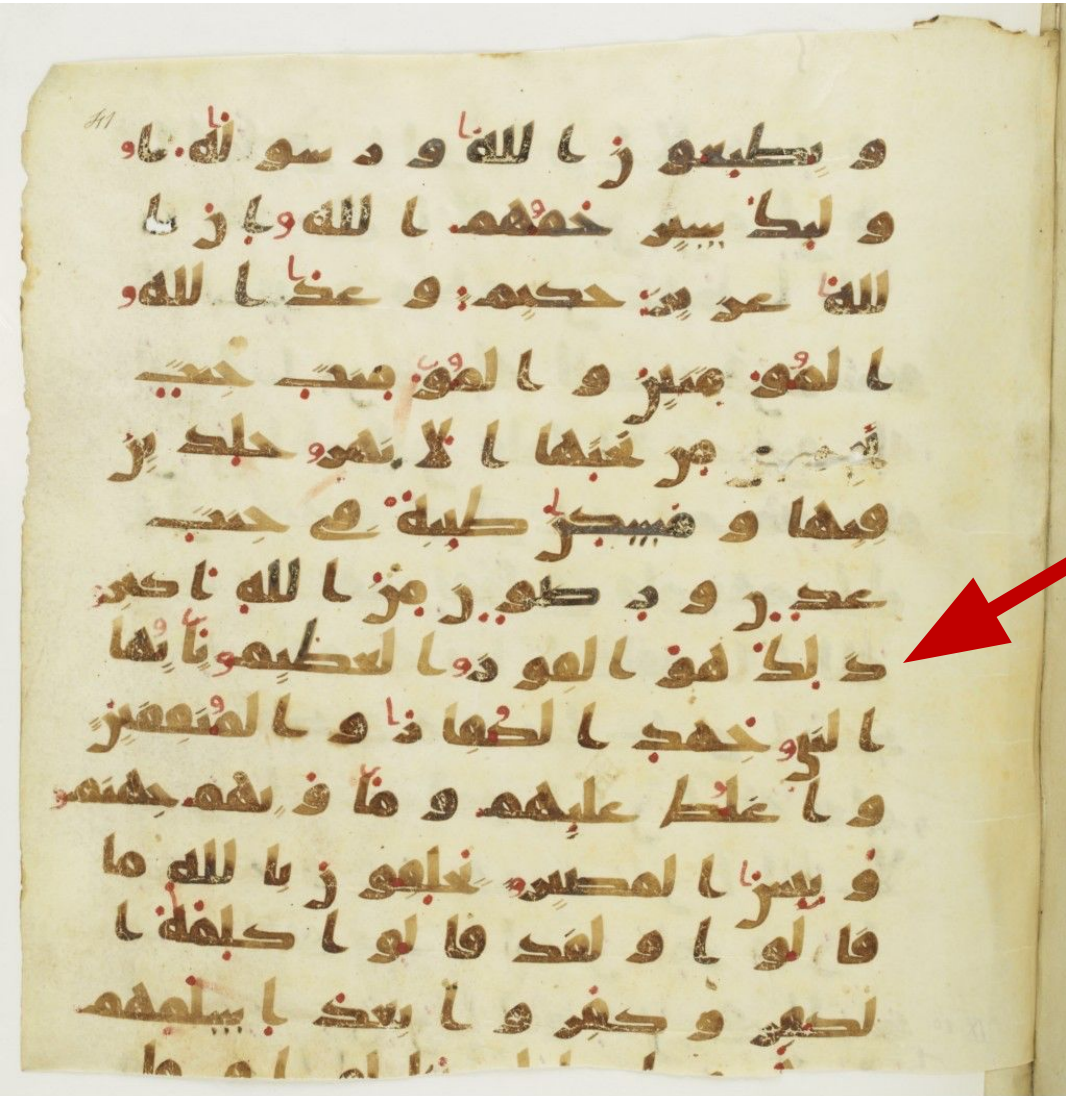 41
و يطيعون ا لله و ر سو له ا
و لئك سير حمهم ا لله ا ن ا
لله عز يز حكيم و عد ا لله
ا لمو منين و ا لمو منت جنت
تجري من تحتها ا لا نهر خلد ين
فيها و مسكن طيبة في جنت
عد ن و ر ضو ن من ا لله ا كبر
ذ لك هو ا لفو ز ا لعظيم يا يها
ا لنبي جهد ا لكفا ر و ا لمنفقين
و ا غلظ عليهم و ما و يهم جهنم
و بئس ا لمصير يحلفو ن با لله ما
قا لو ا و لقد قا لو ا كلمة ا
لكفر و كفر و ا بعد ا سلمهم